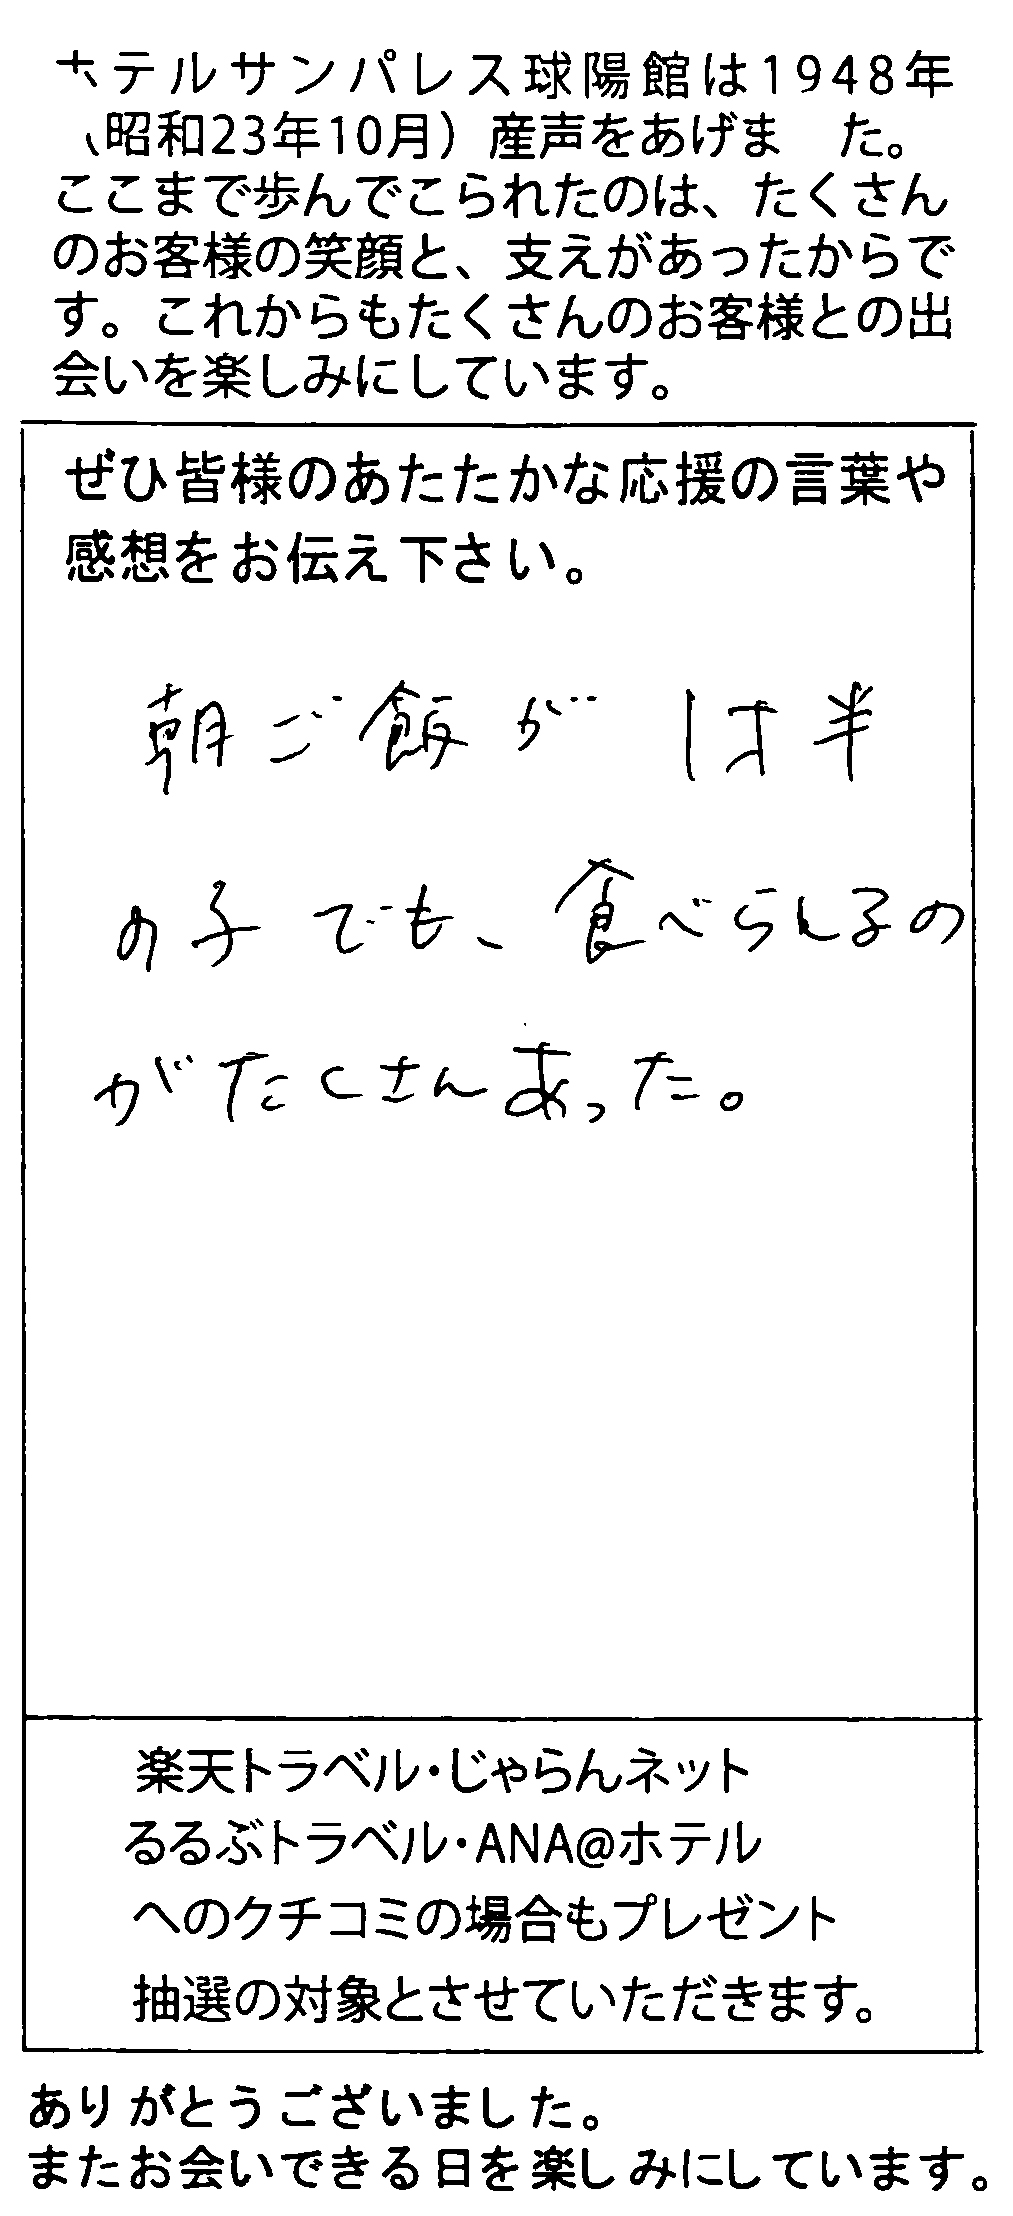 ホテルサンパレス球陽館は1948年
（昭和23年10月）産声をあげま た。
ここまで歩んでこられたのは、たくさん
のお客様の笑顔と、支えがあったからで
す。これからもたくさんのお客様との出
会いを楽しみにしています。
ぜひ皆様のあたたかな応援の言葉や
感想をお伝え下さい。
朝ご飯が 1才半
の子でも、食べられるの
がたくさんあった。
楽天トラベル・じゃらんネット
るるぶトラベル・ANA@ホテル
へのクチコミの場合もプレゼント
抽選の対象とさせていただきます。
ありがとうございました。
またお会いできる日を楽しみにしています。